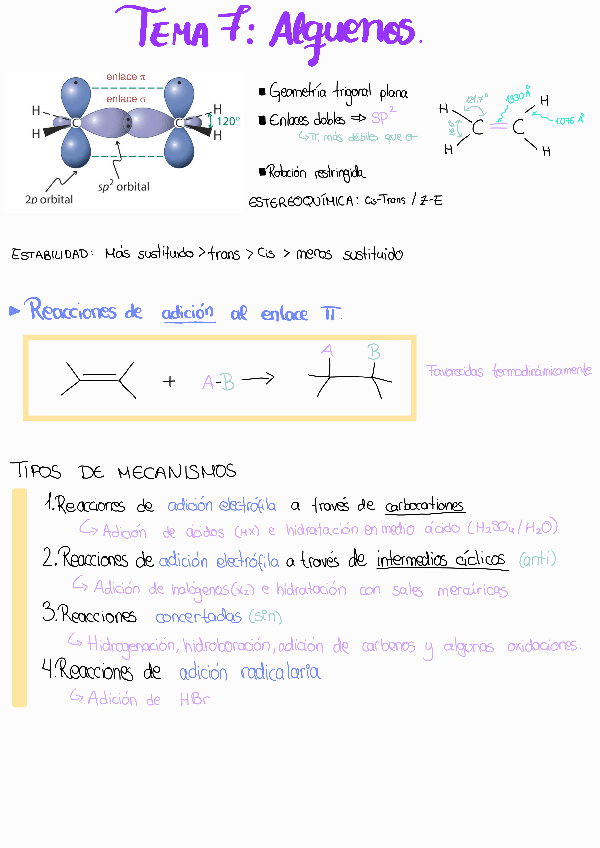 TEMA 7: Alquenos.
enlace π
enlace σ
H
H
C
C
H
H
120°
sp² orbital
2p orbital
▪ Geometría trigonal plana
▪ Enlaces dobles ⇒ SP²
↳ π, más débiles que σ
▪ Rotación restringida
ESTEREOQUÍMICA: Cis-Trans / Z-E
H
121.7°
1.330 Å
H
C = C
1.076 Å
H
H
ESTABILIDAD: Más sustituido > trans > Cis > menos sustituido
▸ Reacciones de adición al enlace π.
+ A-B →
A
B
Favorecidas termodinámicamente
TIPOS DE MECANISMOS
1. Reacciones de adición electrófila a través de carbocationes
↳ Adición de ácidos (HX) e hidratación en medio ácido (H₂SO₄/H₂O)
2. Reacciones de adición electrófila a través de intermedios cíclicos (anti)
↳ Adición de halógenos (X₂) e hidratación con sales mercúricas
3. Reacciones concertadas (sin)
↳ Hidrogenación, hidroboración, adición de carbenos y algunas oxidaciones.
4. Reacciones de adición radicalaria
↳ Adición de HBr